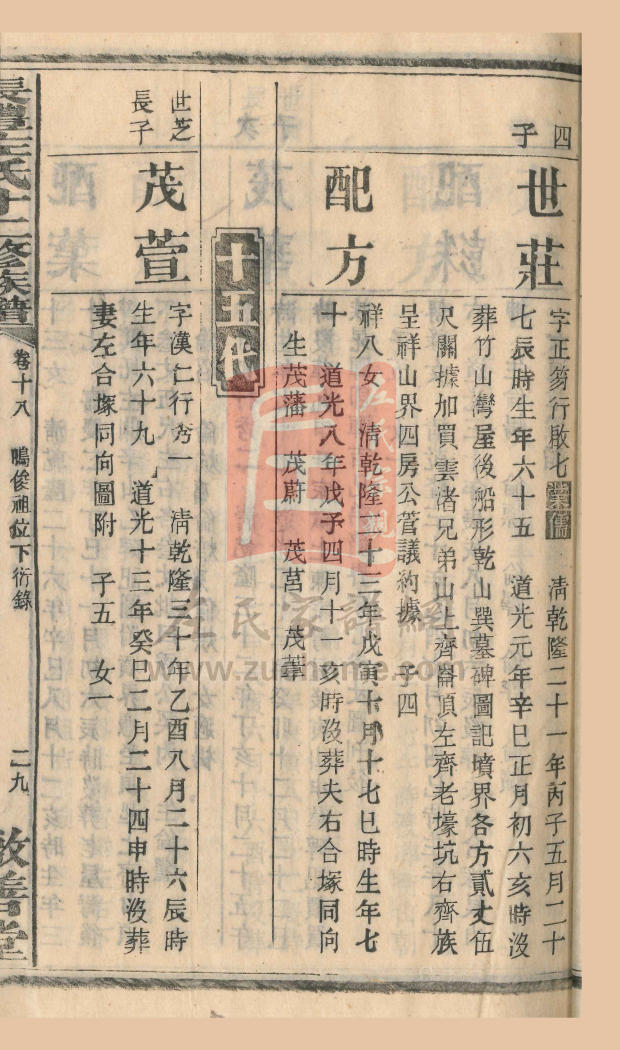 四
子
世莊
字正笏行啟七業儒 清乾隆二十一年丙子五月二十
七辰時生年六十五 道光元年辛巳正月初六亥時沒
葬竹山灣屋後船形乾山巽墓碑圖記墳界各方貳丈伍
尺關據加買雲渚兄弟山上齊崙頂左齊老壕坑右齊族
呈祥山界四房公管議約據 子四
配方
祥八女 清乾隆二十三年戊寅十月十七巳時生年七
十 道光八年戊子四月十一亥時沒葬夫右合塚同向
生茂藩 茂蔚 茂莒 茂葦
十五代
世芝
長子
茂萱
字漢仁行秀一 清乾隆三十年乙酉八月二十六辰時
生年六十九 道光十三年癸巳二月二十四申時沒葬
妻左合塚同向圖附 子五 女一
左氏十二修族譜
卷十八 鳴俊祖位下衍錄
二九
敦善堂
左民家譜網
www.zuohome.com